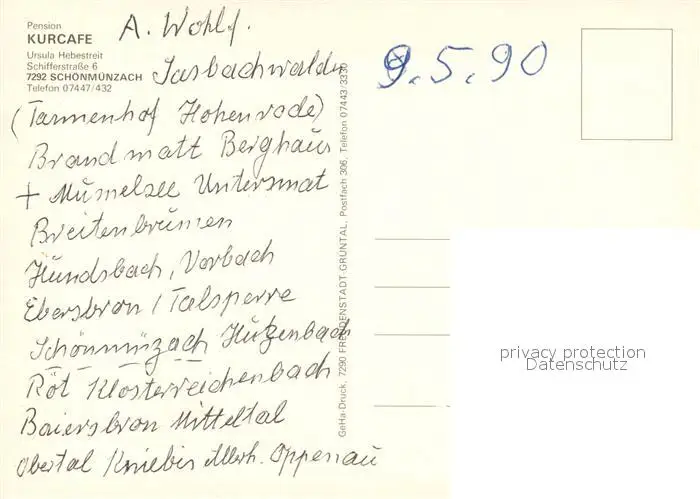 Pension
KURCAFE
Ursula Hebestreit
Schifferstraße 6
7292 SCHÖNMÜNZACH
Telefon 07447/432
A. Wohlf.
Sasbachwalden
(Tannenhof Hohenrode)
Brandmatt Berghaus
+ Mümelsee Untersmat
Breitenbrünen
Hundsbach, Vorbach
Ebersbron / Talsperre
Schönmünzach Hutzenbach
Röt Klosterreichenbach
Baiersbron Mitteltal
Obertal Kniebis Oppenau
GeHa-Druck, 7290 FREUDENSTADT-GRÜNTAL, Postfach 306, Telefon 07443/3330
9.5.90
privacy protection
Datenschutz